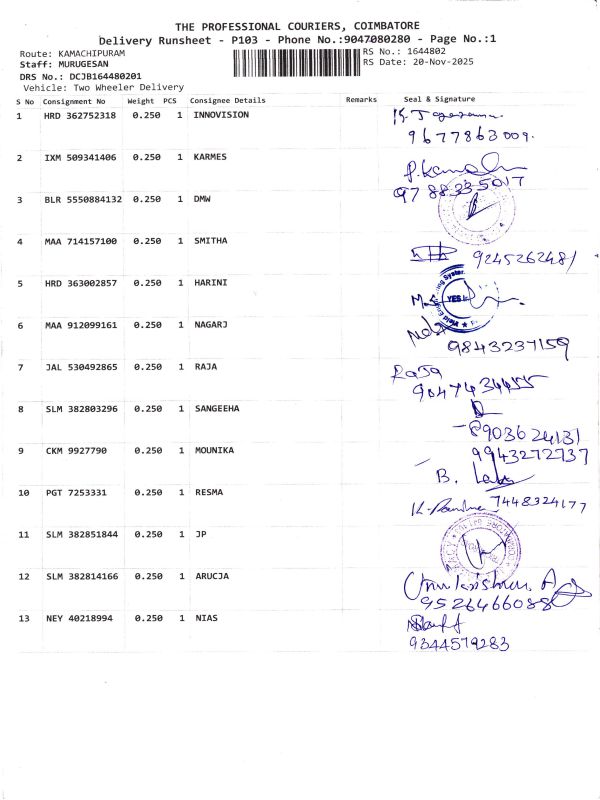 THE PROFESSIONAL COURIERS, COIMBATORE
Delivery Runsheet - P103 - Phone No.:9047080280 - Page No.:1
Route: KAMACHIPURAM
RS No.: 1644802
Staff: MURUGESAN
RS Date: 20-Nov-2025
DRS No.: DCJB164480201
Vehicle: Two Wheeler Delivery
S No Consignment No Weight PCS Consignee Details Remarks Seal & Signature
1 HRD 362752318 0.250 1 INNOVISION
9677863009.
2 IXM 509341406 0.250 1 KARMES
9788335017
3 BLR 5550884132 0.250 1 DMW
4 MAA 714157100 0.250 1 SMITHA
9245262481
5 HRD 363002857 0.250 1 HARINI
YES
6 MAA 912099161 0.250 1 NAGARJ
9843237159
7 JAL 530492865 0.250 1 RAJA
RaJa
8 SLM 382803296 0.250 1 SANGEEHA
8903624131
9 CKM 9927790 0.250 1 MOUNIKA
9943272737
B.
10 PGT 7253331 0.250 1 RESMA
7448324177
11 SLM 382851844 0.250 1 JP
12 SLM 382814166 0.250 1 ARUCJA
9526466088
13 NEY 40218994 0.250 1 NIAS
9344579283